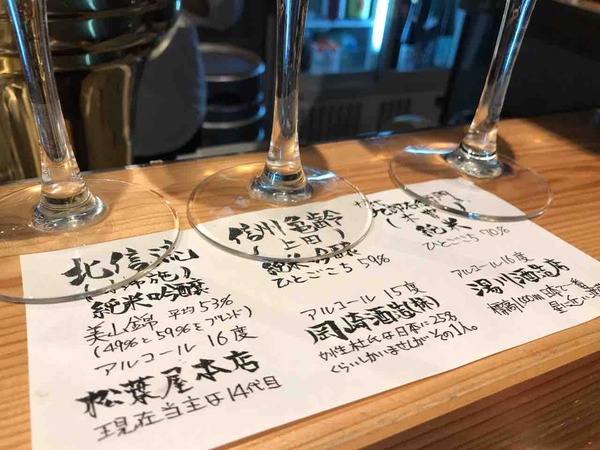 北信流
純米吟醸
美山錦 平均53%
(49%と59%をブレンド)
アルコール 16度
松葉屋本店
現在当主は14代目
信州亀齢
(上田)
純米吟醸
ひとごこち 59%
アルコール 15度
岡崎酒造(株)
女性杜氏は日本に25%
くらいしかいませんがその1人。
純米
ひとごこち 70%
アルコール16度
湯川酒造店
標高1100m 日本で一番
星に近い